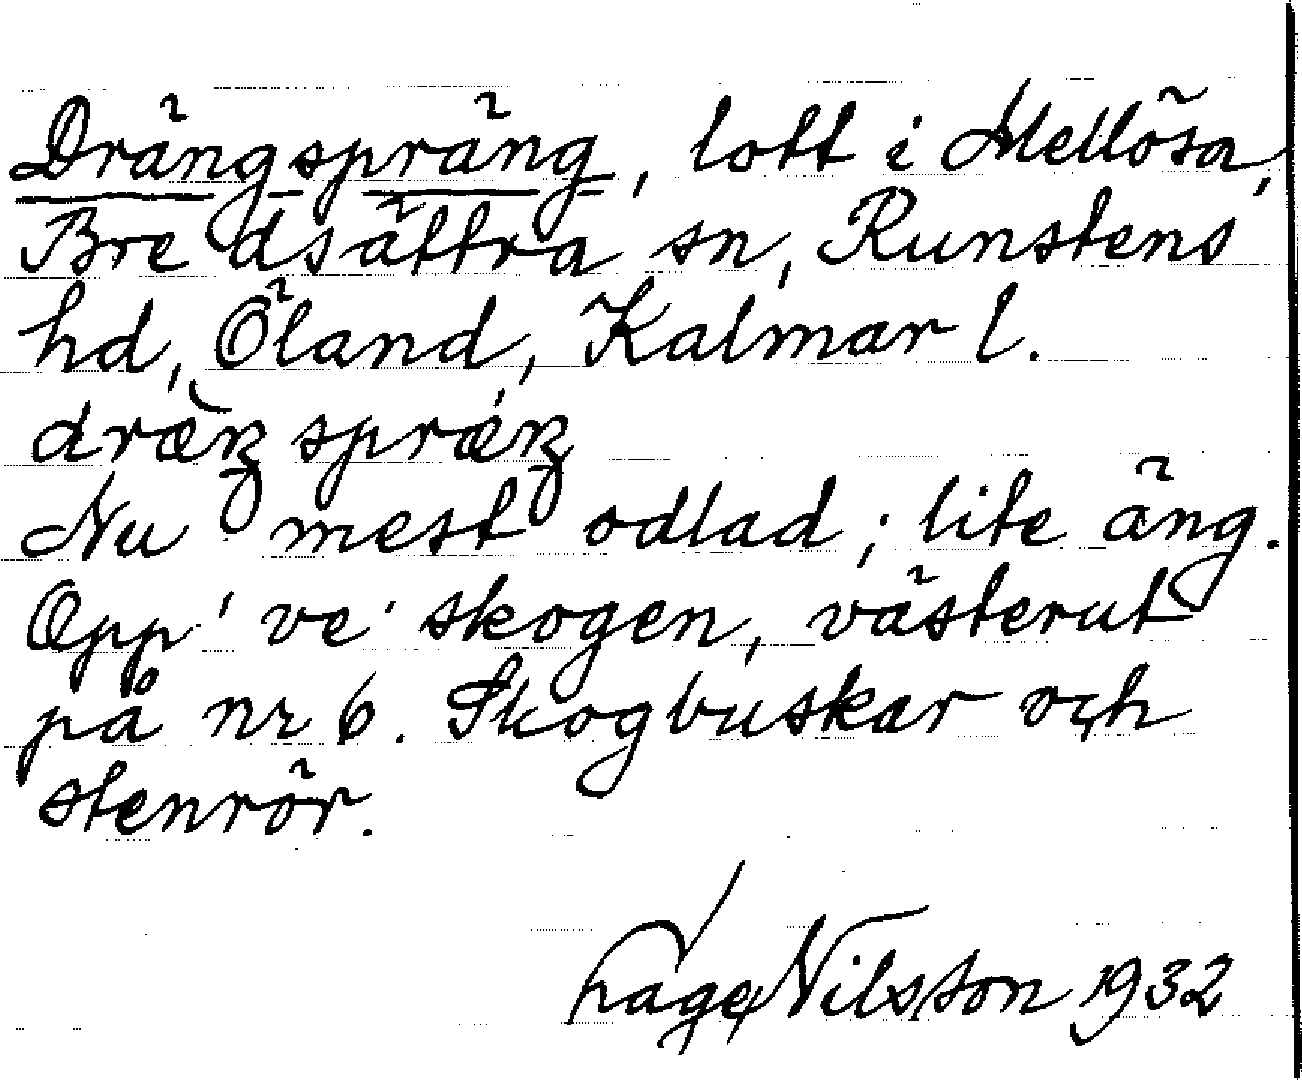 Drängspräng, lott i Mellösa,
Bredsättra sn, Runstens
hd, Öland, Kalmar l.
dræŋ spræŋ
Nu mest odlad; lite äng.
Opp' ve' skogen, västerut
på nr 6. Skogbuskar och
stenrör.
Nilsson 1932